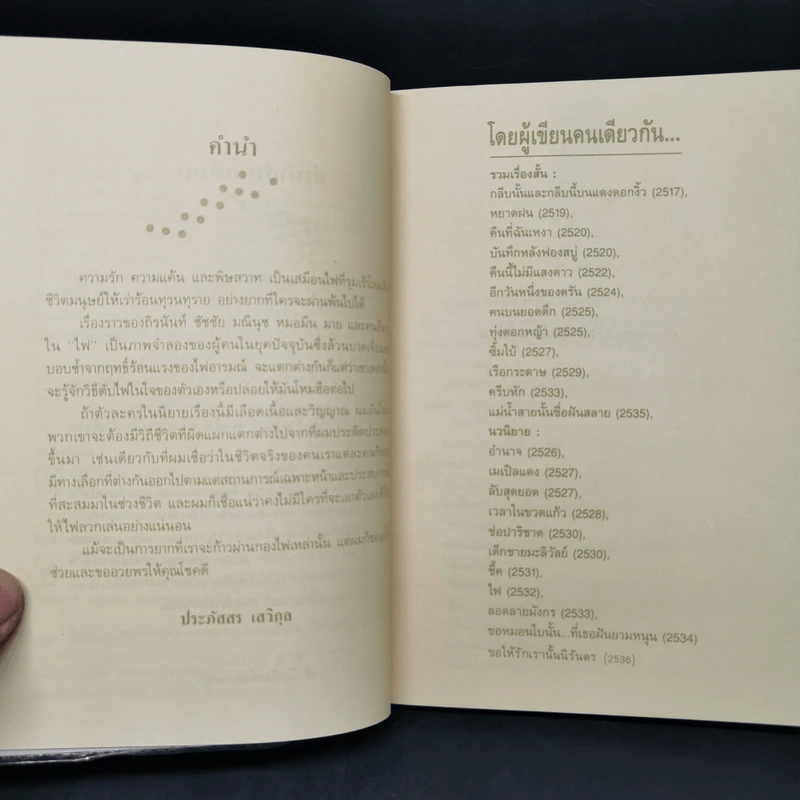 คำนำ
ความรัก ความแค้น และพิษสวาท เป็นเสมือนไฟที่รุมเร้า
ชีวิตมนุษย์ให้เร่าร้อนทุรนทุราย อย่างยากที่ใครจะผ่านพ้นไปได้
เรื่องราวของถิรนันท์ ชัชชัย มณีนุช หมอมีน มาย และคนอื่น
ใน "ไฟ" เป็นภาพจำลองของผู้คนในยุคปัจจุบันซึ่งล้วนบาดเจ็บ
บอบช้ำจากฤทธิ์ร้อนแรงของไฟอารมณ์ จะแตกต่างกันก็แต่ว่า
จะรู้จักวิธีดับไฟในใจของตัวเองหรือปล่อยให้มันโหมฮือต่อไป
ถ้าตัวละครในนิยายเรื่องนี้มีเลือดเนื้อและวิญญาณ
พวกเขาจะต้องมีวิถีชีวิตที่ผิดแผกแตกต่างไปจากที่ผมประดิษ
ขึ้นมา เช่นเดียวกับที่ผมเชื่อว่าในชีวิตจริงของคนเราแต่ละคน
มีทางเลือกที่ต่างกันออกไปตามแต่สถานการณ์เฉพาะหน้าและ
ที่สะสมมาในช่วงชีวิต และผมก็เชื่อแน่ว่าคงไม่มีใครที่จะเอาตัว
ให้ไฟลวกเล่นอย่างแน่นอน
แม้จะเป็นการยากที่เราจะก้าวผ่านกองไฟเหล่านั้น
ช่วยและขออวยพรให้คุณโชคดี
ประภัสสร เสวิกุล
โดยผู้เขียนคนเดียวกัน...
รวมเรื่องสั้น :
กลีบนั้นและกลีบนี้บนแดงดอกงิ้ว (2517),
หยาดฝน (2519),
คืนที่ฉันเหงา (2520),
บันทึกหลังฟองสบู่ (2520),
คืนนี้ไม่มีแสงดาว (2522),
อีกวันหนึ่งของตรัน (2524),
คนบนยอดตึก (2525),
ทุ่งดอกหญ้า (2525),
ซิ้มใบ้ (2527),
เรือกระดาษ (2529),
ครีบหัก (2533),
แม่น้ำสายนั้นชื่อฝันสลาย (2535),
นวนิยาย :
อำนาจ (2526),
เมเปิลแดง (2527),
ลับสุดยอด (2527),
เวลาในขวดแก้ว (2528),
ช่อปาริชาต (2530),
เด็กชายมะลิวัลย์ (2530),
ชี้ค (2531),
ไฟ (2532),
ลอดลายมังกร (2533),
ขอหมอนใบนั้น...ที่เธอฝันยามหนุน (2534)
ขอให้รักเรานั้นนิรันดร (2536)